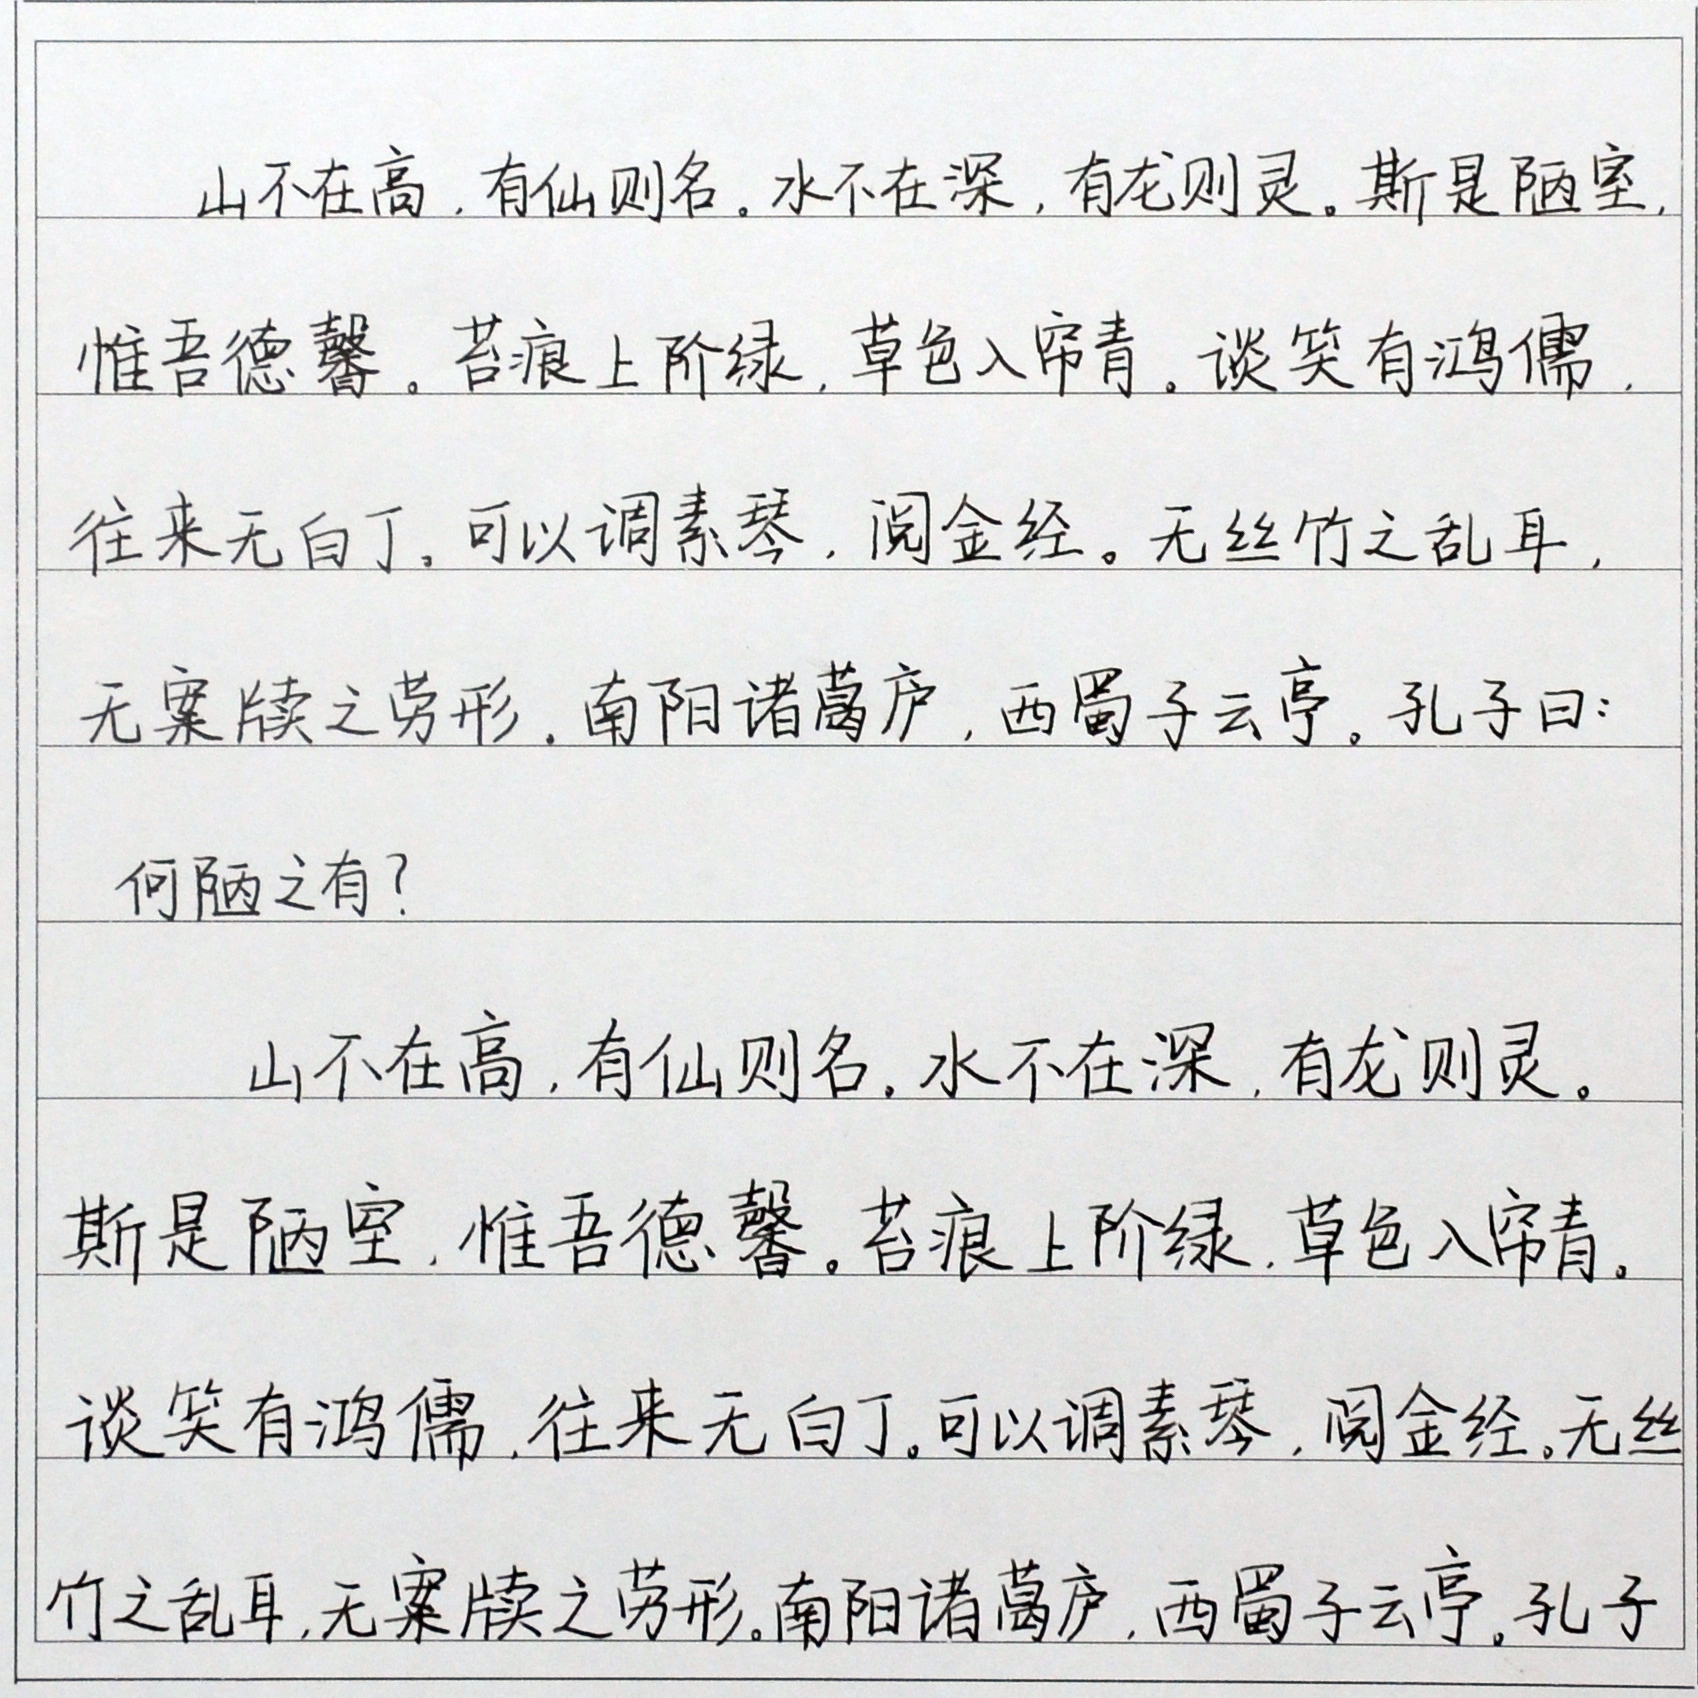 山不在高，有仙则名。水不在深，有龙则灵。斯是陋室，
惟吾德馨。苔痕上阶绿，草色入帘青。谈笑有鸿儒，
往来无白丁。可以调素琴，阅金经。无丝竹之乱耳，
无案牍之劳形。南阳诸葛庐，西蜀子云亭。孔子曰：
何陋之有？
山不在高，有仙则名。水不在深，有龙则灵。
斯是陋室，惟吾德馨。苔痕上阶绿，草色入帘青。
谈笑有鸿儒，往来无白丁。可以调素琴，阅金经。无丝
竹之乱耳，无案牍之劳形。南阳诸葛庐，西蜀子云亭。孔子